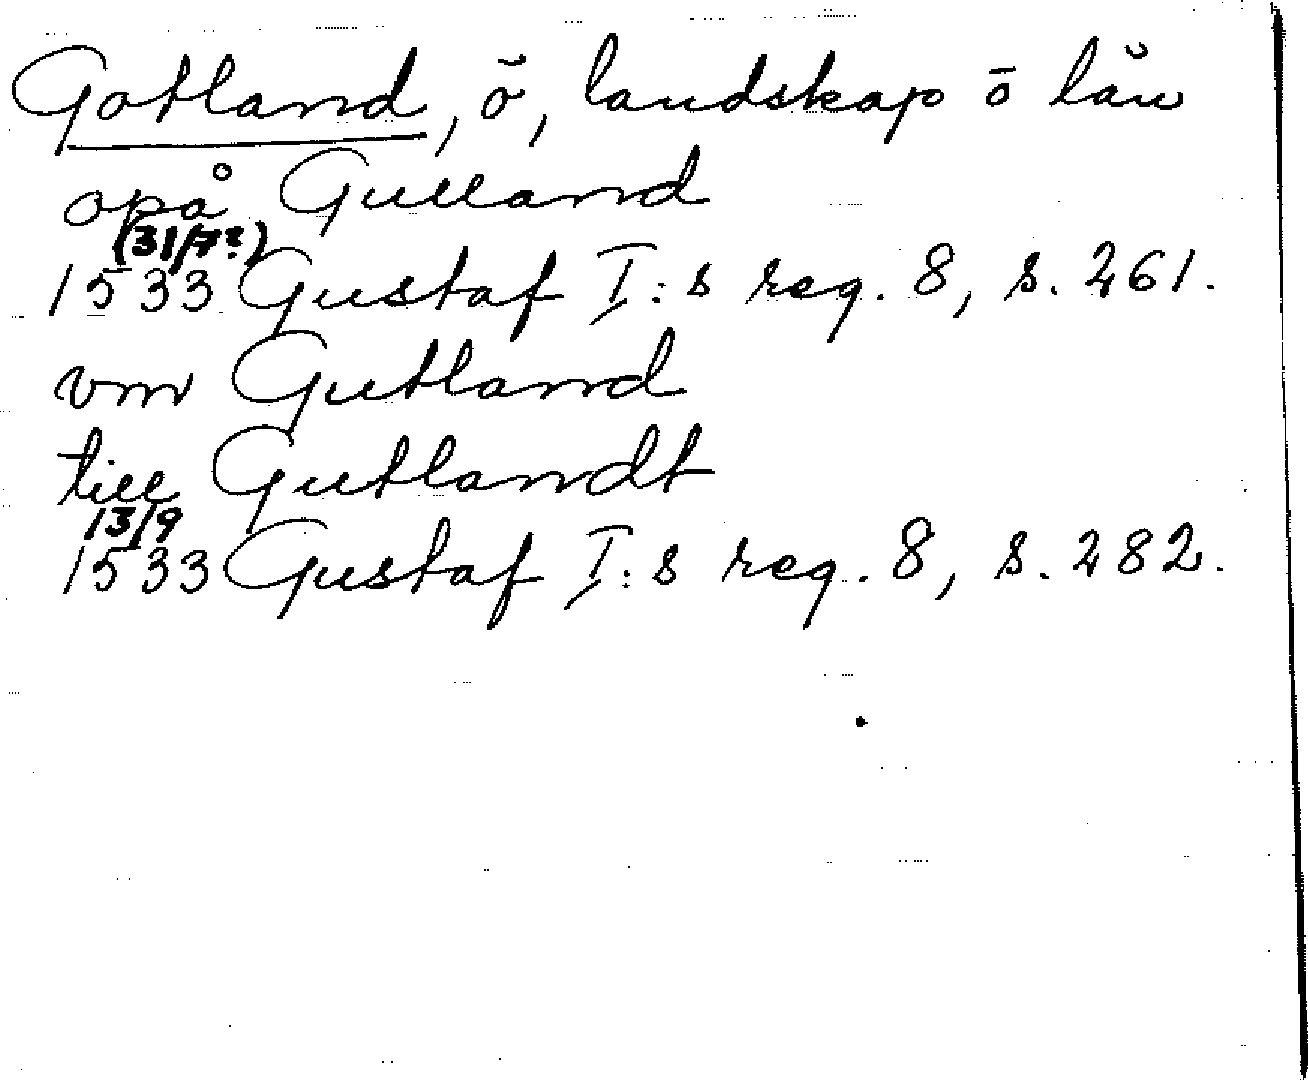 Gotland, ö, landskap o län
opå Gulland
(31/7?)
1533 Gustaf I:s reg. 8, s. 261.
vm Gutland
till Gutlandt
13/9
1533 Gustaf I:s reg. 8, s. 282.